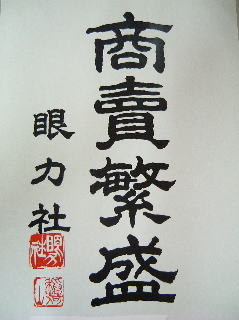 商賣繁盛
眼力社